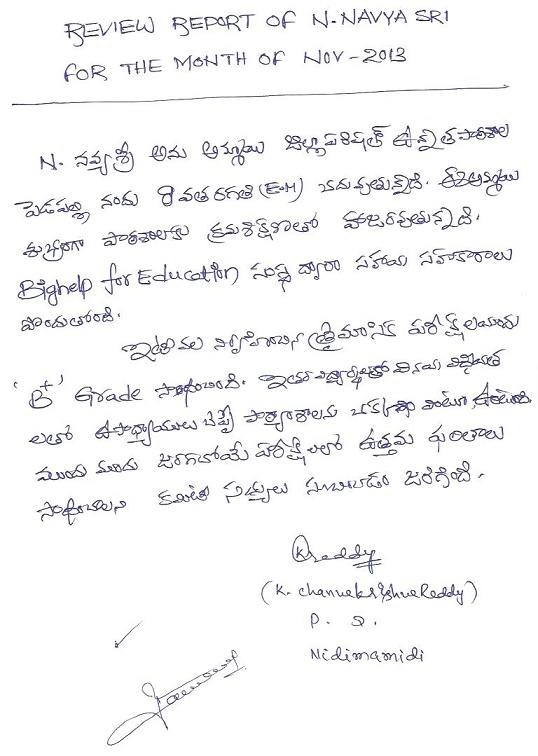 REVIEW REPORT OF N.NAVYA SRI
FOR THE MONTH OF NOV-2013
N. నవ్యశ్రీ అను అమ్మాయి జిల్లాపరిషత్ ఉన్నతపాఠశాల
పెడపల్లి నందు 8వతరగతి (E.M) చదువుతున్నది. ఈ అమ్మాయి
శుభ్రంగా పాఠశాలకు క్రమశిక్షణతో హాజరవుతున్నది.
Bighelp for Education సంస్థ ద్వారా సహాయ సహకారాలు
పొందుతోంది.
ఇటీవల నిర్వహించిన త్రైమాసిక పరీక్షలయందు
'B+' Grade సాధించింది. ఇతర వినయ
లతో ఉపాధ్యాయులు చెప్పే పాఠ్యాంశాలను చక్కగా వింటూ ఉంటుంది
ముందు ముందు జరగబోయే పరీక్షలలో ఉత్తమ ఫలితాలు
సాధించాలని కమిటీ సభ్యులు సూచించడం జరిగింది.
KReddy
(K. Reddy)
P. D.
Nidimamidi